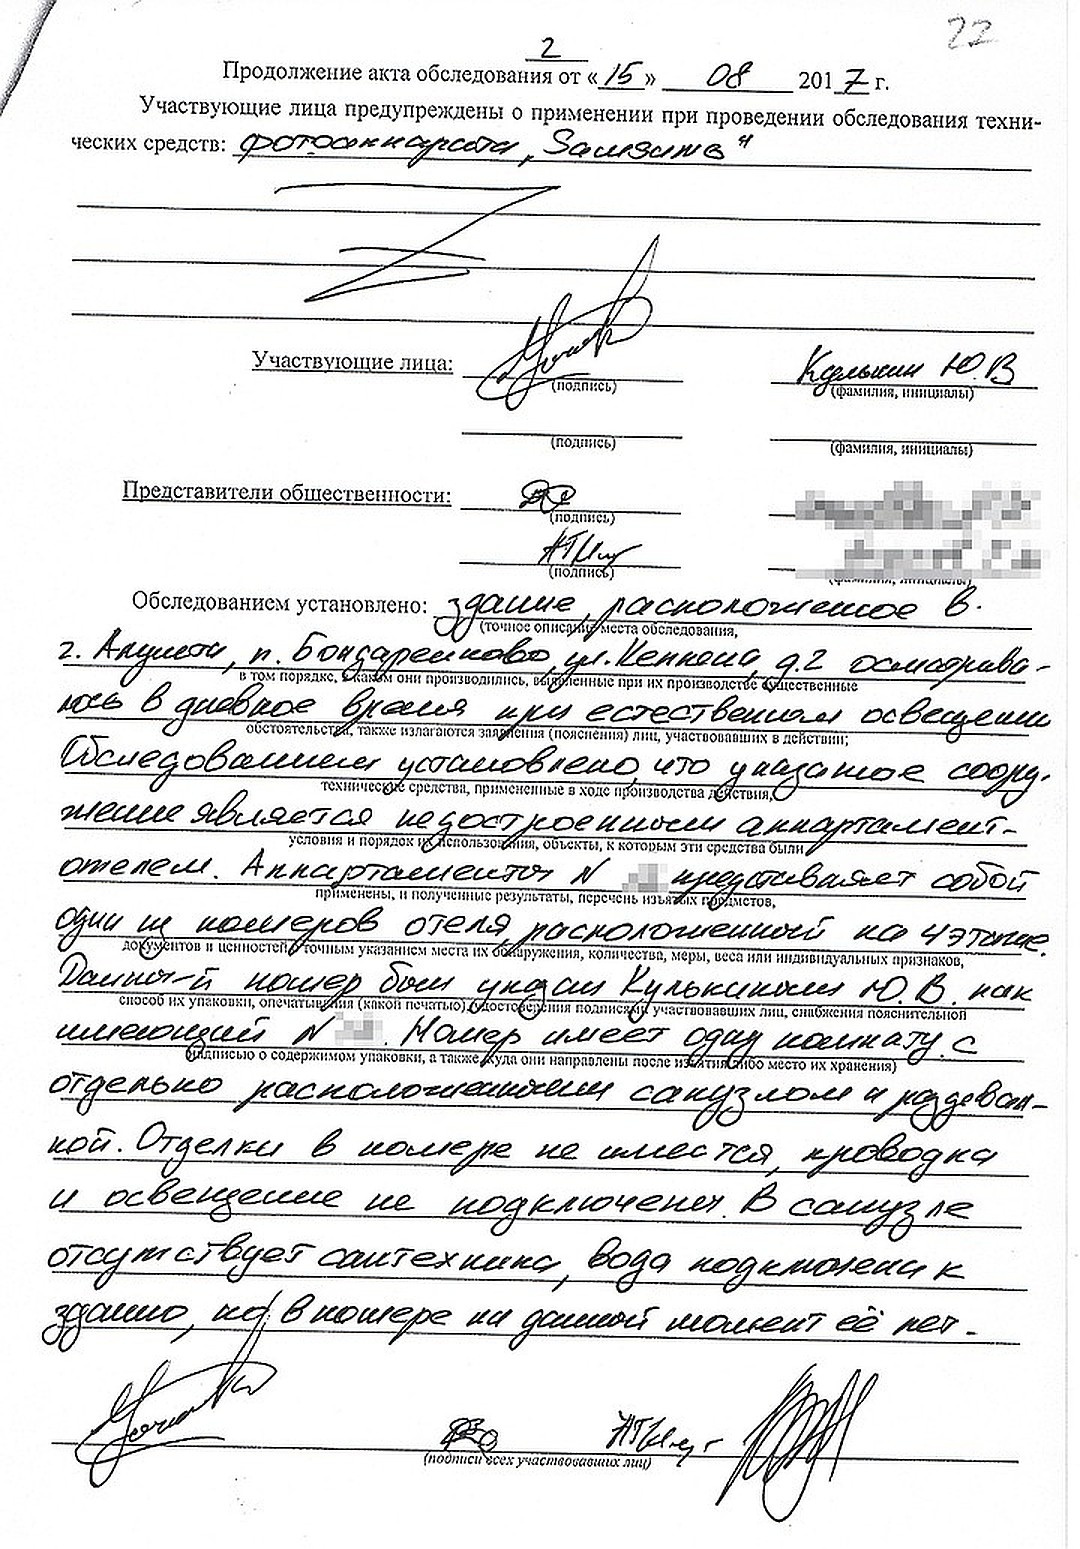 22
2
Продолжение акта обследования от «15» 08 2017 г.
Участвующие лица предупреждены о применении при проведении обследования техни-
ческих средств: фотоаппарата „Samsung"
Участвующие лица:
(подпись) (фамилия, инициалы)
Кулькин Ю.В
(подпись) (фамилия, инициалы)
Представители общественности:
(подпись)
(подпись) (фамилия, инициалы)
Обследованием установлено: здание, расположенное в
(точное описание места обследования,
г. Алушта, п. Бондаренково, ул. Кеппена, д.2 осматрива-
в том порядке, в каком они производились, выявленные при их производстве существенные
лось в дневное время при естественном освещении
обстоятельства, также излагаются заявления (пояснения) лиц, участвовавших в действии;
Обследованием установлено, что указанное соору-
технические средства, примененные в ходе производства действия,
жение является недостроенным аппартамент-
условия и порядок их использования, объекты, к которым эти средства были
отелем. Аппартаменты N представляет собой
применены, и полученные результаты, перечень изъятых предметов,
один из номеров отеля расположенный на 4 этаже.
документов и ценностей с точным указанием места их обнаружения, количества, меры, веса или индивидуальных признаков,
Данный номер был указан Кулькиным Ю.В. как
способ их упаковки, опечатывания (какой печатью), удостоверения подписями участвовавших лиц, снабжения пояснительной
имеющий N . Номер имеет одну комнату с
надписью о содержимом упаковки, а также куда они направлены после изъятия либо место их хранения)
отдельно расположенным санузлом и раздевал-
кой. Отделки в номере не имеется, проводка
и освещение не подключены. В санузле
отсутствует сантехника, вода подключена к
зданию, но в номере на данный момент её нет.
(подписи всех участвовавших лиц)